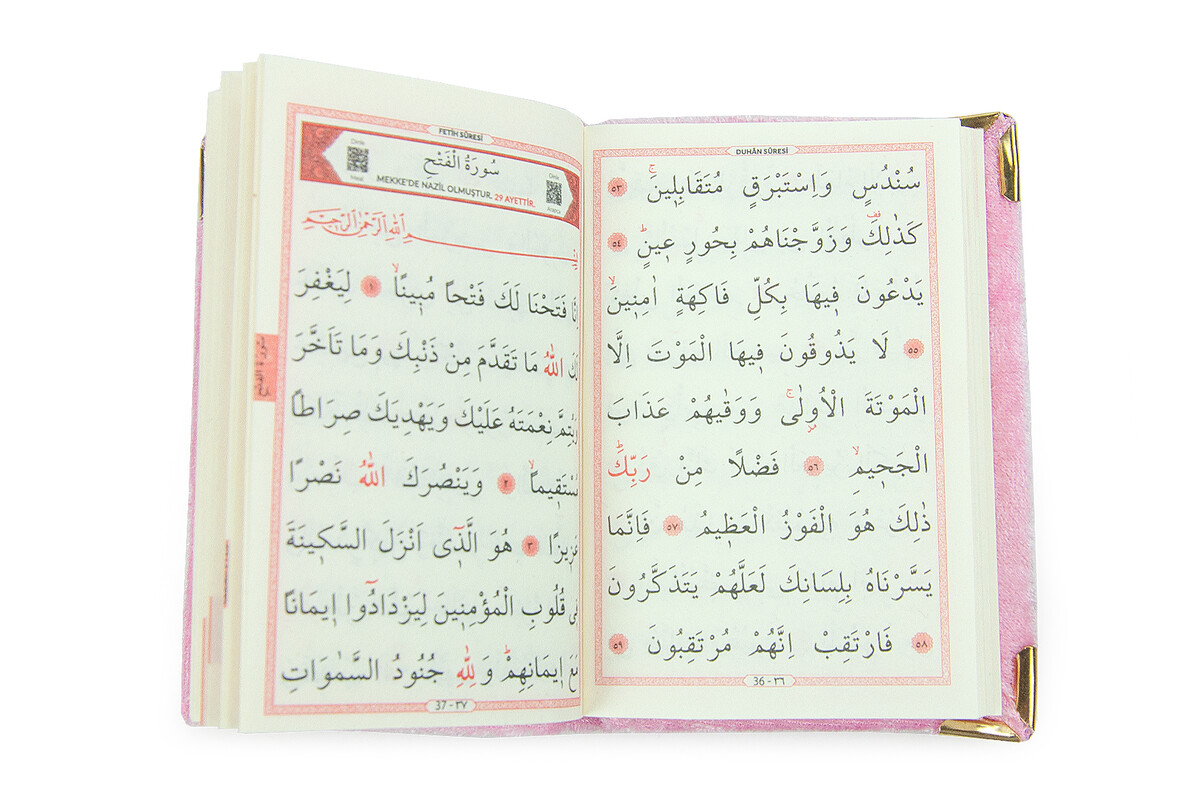 DUHÂN SÛRESİ
سُنْدُسٍ وَاِسْتَبْرَقٍ مُتَقَابِلٖينَۚ ﴿٥٣﴾
كَذٰلِكَ۠ وَزَوَّجْنَاهُمْ بِحُورٍ عٖينٍؕ ﴿٥٤﴾
يَدْعُونَ فٖيهَا بِكُلِّ فَاكِهَةٍ اٰمِنٖينَۙ
﴿٥٥﴾ لَا يَذُوقُونَ فٖيهَا الْمَوْتَ اِلَّا
الْمَوْتَةَ الْاُولٰىۚ وَوَقٰيهُمْ عَذَابَ
الْجَحٖيمِۙ ﴿٥٦﴾ فَضْلًا مِنْ رَبِّكَؕ
ذٰلِكَ هُوَ الْفَوْزُ الْعَظٖيمُ ﴿٥٧﴾ فَاِنَّمَا
يَسَّرْنَاهُ بِلِسَانِكَ لَعَلَّهُمْ يَتَذَكَّرُونَ
﴿٥٨﴾ فَارْتَقِبْ اِنَّهُمْ مُرْتَقِبُونَ ﴿٥٩﴾
36 - ٣٦
FETİH SÛRESİ
سُورَةُ الْفَتْحِ
MEKKE'DE NAZİL OLMUŞTUR. 29 AYETTİR.
Dinle
Meal
Dinle
Arapça
بِسْمِ اللّٰهِ الرَّحْمٰنِ الرَّحٖيمِ
اِنَّا فَتَحْنَا لَكَ فَتْحاً مُبٖيناًۙ ﴿١﴾ لِيَغْفِرَ
لَكَ اللّٰهُ مَا تَقَدَّمَ مِنْ ذَنْبِكَ وَمَا تَاَخَّرَ
وَيُتِمَّ نِعْمَتَهُ عَلَيْكَ وَيَهْدِيَكَ صِرَاطاً
مُسْتَقٖيماًۙ ﴿٢﴾ وَيَنْصُرَكَ اللّٰهُ نَصْرًا
عَزٖيزًا ﴿٣﴾ هُوَ الَّذٖٓى اَنْزَلَ السَّكٖينَةَ
فٖى قُلُوبِ الْمُؤْمِنٖينَ لِيَزْدَادُٓوا اٖيمَانًا
مَعَ اٖيمَانِهِمْؕ وَلِلّٰهِ جُنُودُ السَّمٰوَاتِ
37 - ٣٧
سورة الفتح